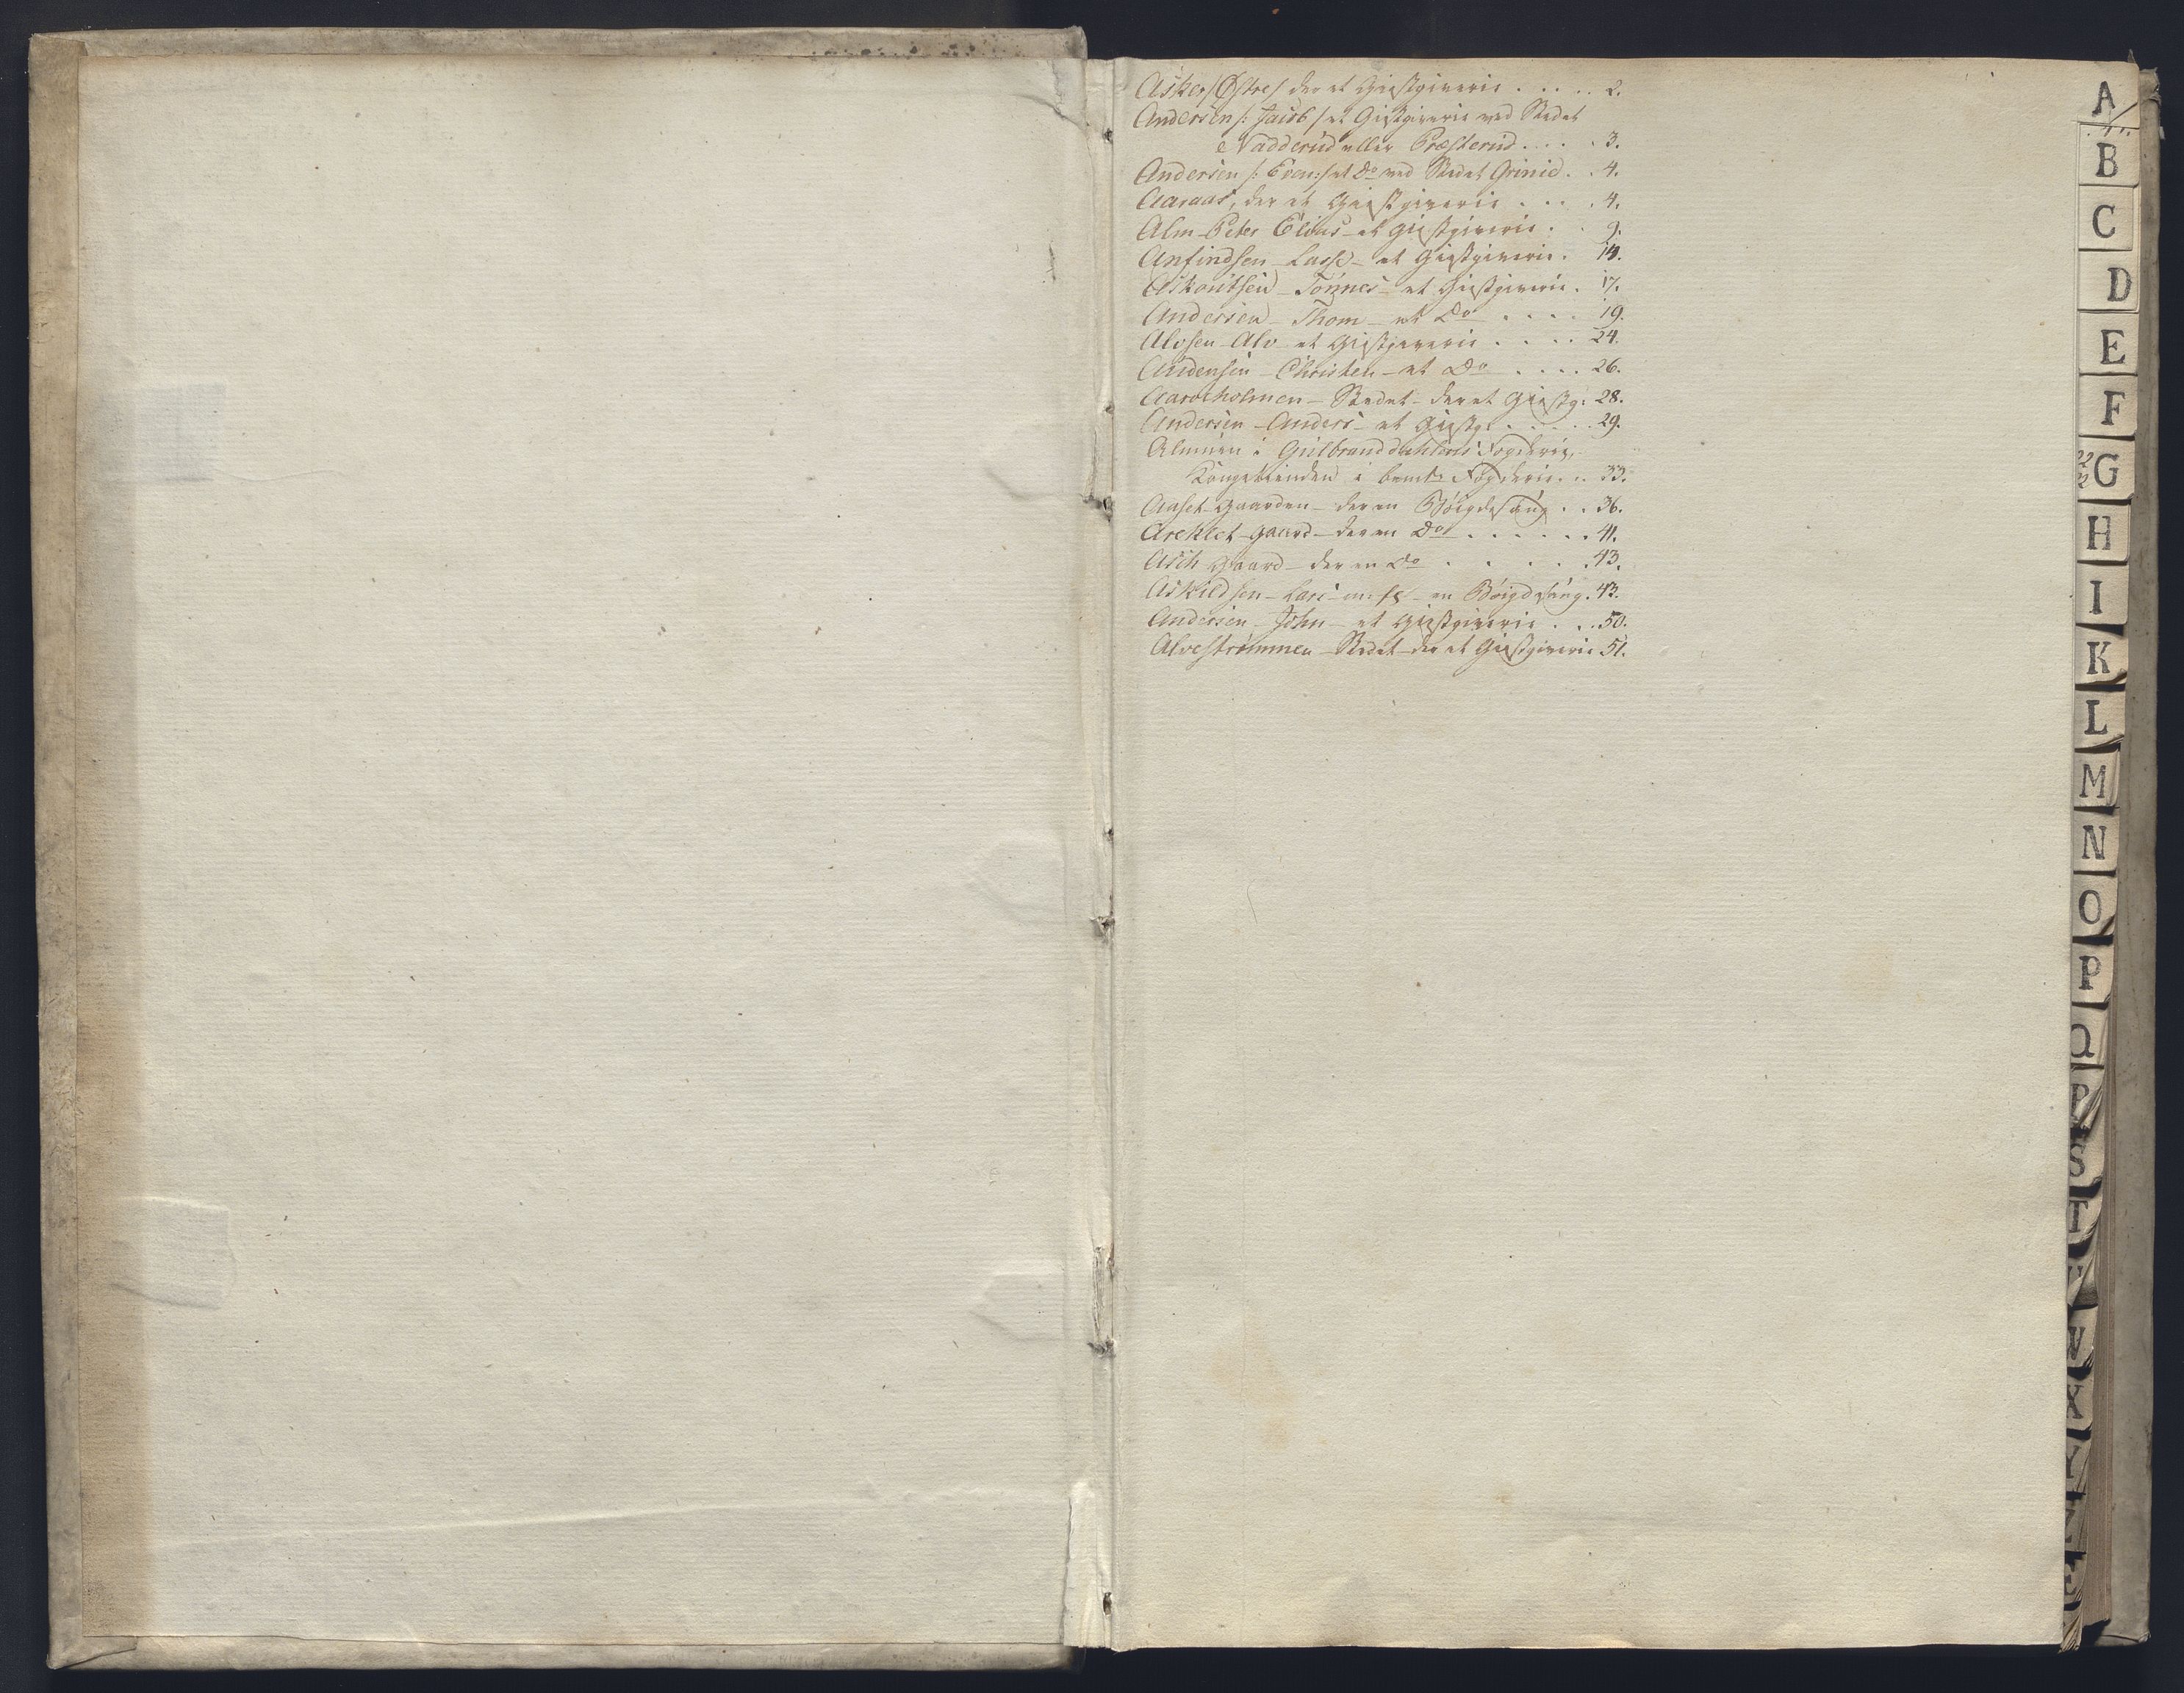 Asker /Østre/ der et Giestgiverie . . . . . 2.
Andersen /: Jacob / et Giestgiverie ved Stedet
Nadderud eller Præsterud . . . . 3.
Andersen /: Even :/ et Do ved Stedet Grinie . . 4.
Aaraas, der et Giestgiverie . . . . 4.
Alm Peter Elous et giestgiverie . . 9.
Anfindsen Lasse et Giestgiverie . 14.
Tønnes et Giestgiverie . 17.
Andersen Thom et Do . . . . 19.
Alvsen Alv et Giestgiverie . . . . 24.
Christen et Do . . . . 26.
Stedet der et Giestg: 28.
Andersen Anders et Giestg: . . . . 29.
Almuen i Gulbrandsdahlens Fogderie,
Kongetienden i bemte Fogderie . . 33.
Aaset gaarden der en Bøigdesáng . . 36.
Areklet gaard der en Do . . . . . . 41.
Asch gaard der en Do . . . . . 43.
Askildsen Lars en Bøigdesáng . 43.
Andersen John et Giestgiverie . . . 50.
Alvestrømmen Stedet der et Giestgiverie 51.
A
B
C
D
E
F
G
H
I
K
L
M
N
O
P
Q
R
S
T
U
W
X
Y
Z